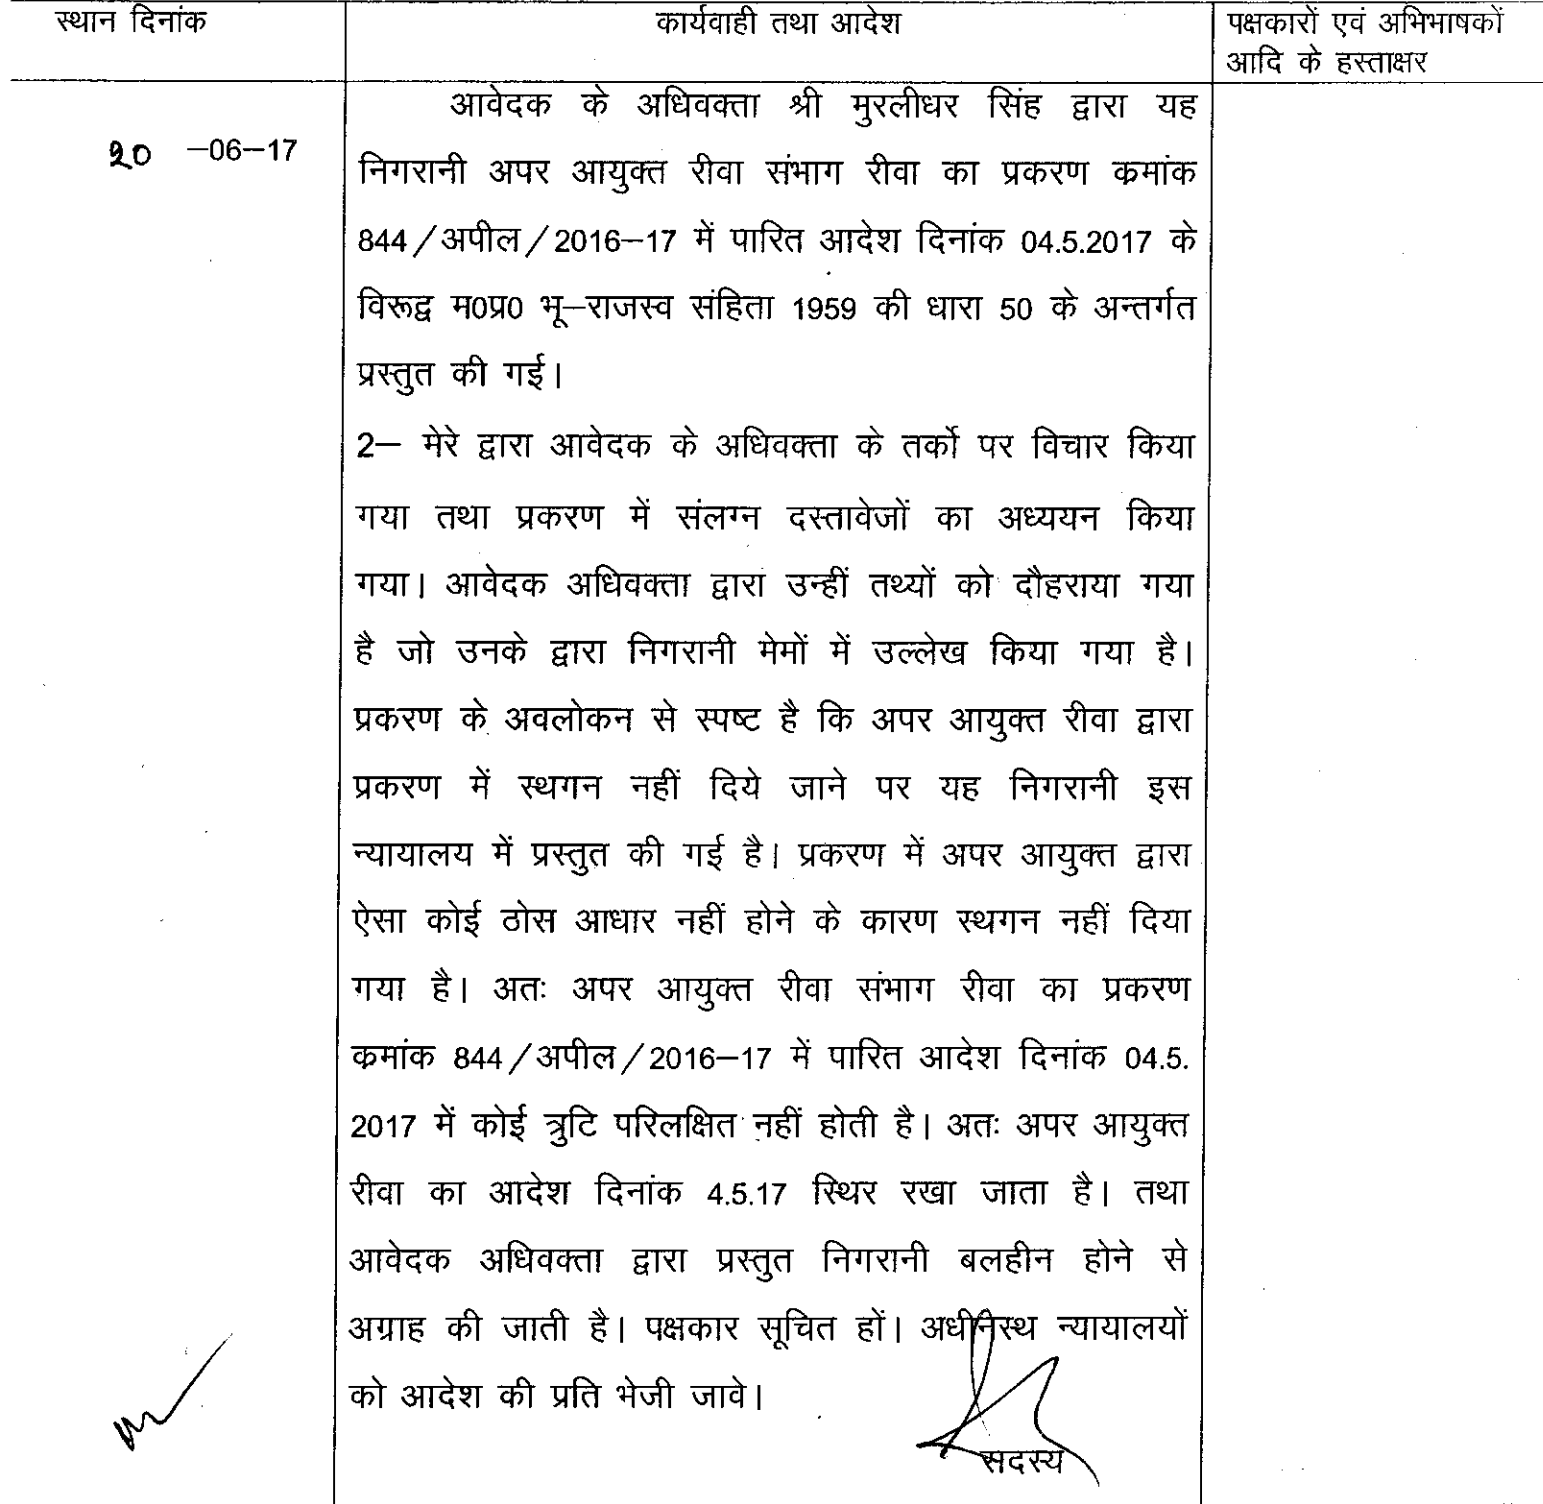 स्थान दिनांक
कार्यवाही तथा आदेश
पक्षकारों एवं अभिभाषकों
आदि के हस्ताक्षर
20 –06–17
आवेदक के अधिवक्ता श्री मुरलीधर सिंह द्वारा यह
निगरानी अपर आयुक्त रीवा संभाग रीवा का प्रकरण कमांक
844/अपील/2016–17 में पारित आदेश दिनांक 04.5.2017 के
विरूद्व म0प्र0 भू–राजस्व संहिता 1959 की धारा 50 के अन्तर्गत
प्रस्तुत की गई।
2– मेरे द्वारा आवेदक के अधिवक्ता के तर्को पर विचार किया
गया तथा प्रकरण में संलग्न दस्तावेजों का अध्ययन किया
गया। आवेदक अधिवक्ता द्वारा उन्हीं तथ्यों को दौहराया गया
है जो उनके द्वारा निगरानी मेमों में उल्लेख किया गया है।
प्रकरण के अवलोकन से स्पष्ट है कि अपर आयुक्त रीवा द्वारा
प्रकरण में स्थगन नहीं दिये जाने पर यह निगरानी इस
न्यायालय में प्रस्तुत की गई है। प्रकरण में अपर आयुक्त द्वारा
ऐसा कोई ठोस आधार नहीं होने के कारण स्थगन नहीं दिया
गया है। अतः अपर आयुक्त रीवा संभाग रीवा का प्रकरण
कमांक 844/अपील/2016–17 में पारित आदेश दिनांक 04.5.
2017 में कोई त्रुटि परिलक्षित नहीं होती है। अतः अपर आयुक्त
रीवा का आदेश दिनांक 4.5.17 स्थिर रखा जाता है। तथा
आवेदक अधिवक्ता द्वारा प्रस्तुत निगरानी बलहीन होने से
अग्राह की जाती है। पक्षकार सूचित हों। अधीनस्थ न्यायालयों
को आदेश की प्रति भेजी जावे।
सदस्य